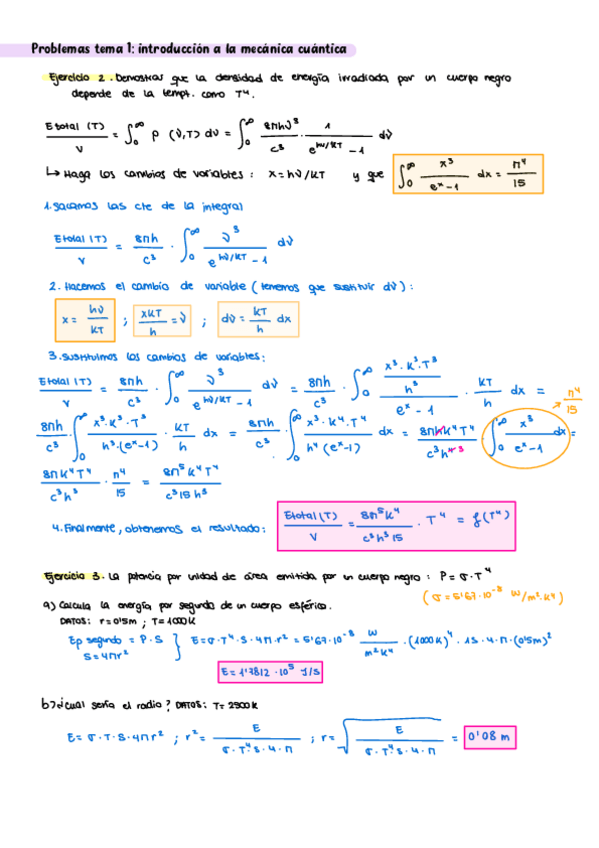 Problemas tema 1: introducción a la mecánica cuántica
Ejercicio 2. Demostrar que la densidad de energía irradiada por un cuerpo negro
depende de la tempt. como T⁴.
Etotal (T) / V = ∫₀^∞ ρ (ν,T) dν = ∫₀^∞ 8πhν³ / c³ · 1 / (e^(hν/KT) - 1) dν
↳ Haga los cambios de variables: x = hν/KT y que ∫₀^∞ x³ / (eˣ - 1) dx = π⁴ / 15
1. Sacamos las cte de la integral
Etotal (T) / V = 8πh / c³ · ∫₀^∞ ν³ / (e^(hν/KT) - 1) dν
2. Hacemos el cambio de variable (tenemos que sustituir dν):
x = hν / KT ; xKT / h = ν ; dν = KT / h dx
3. Sustituimos los cambios de variables:
Etotal (T) / V = 8πh / c³ · ∫₀^∞ ν³ / (e^(hν/KT) - 1) dν = 8πh / c³ · ∫₀^∞ (x³·K³·T³ / h³) / (eˣ - 1) · KT / h dx =
8πh / c³ · ∫₀^∞ x³·K³·T³ / h³·(eˣ-1) · KT / h dx = 8πh / c³ · ∫₀^∞ x³·K⁴·T⁴ / h⁴(eˣ-1) dx = 8πhK⁴T⁴ / c³h⁴·³ ∫₀^∞ x³ / (eˣ-1) dx = → π⁴ / 15
8πK⁴T⁴ / c³h³ · π⁴ / 15 = 8π⁵K⁴T⁴ / c³15h³
4. Finalmente, obtenemos el resultado: Etotal (T) / V = 8π⁵K⁴ / c³h³15 · T⁴ = f(T⁴)
Ejercicio 3. La potencia por unidad de área emitida por un cuerpo negro: P = σ·T⁴
(σ = 5'67·10⁻⁸ W/m²·K⁴)
a) Calcula la energía por segundo de un cuerpo esférico.
DATOS: r = 0'5m ; T = 1000K
Ep segundo = P·S } E = σ·T⁴·S·4π·r² = 5'67·10⁻⁸ W / m²K⁴ · (1000K)⁴ · 1s·4·π·(0'5m)²
S = 4πr²
E = 1'7812·10⁵ J/s
b) ¿cual sería el radio? DATOS: T = 2500K
E = σ·T·S·4πr² ; r² = E / σ·T⁴·S·4·π ; r = √(E / σ·T⁴·S·4·π) = 0'08 m